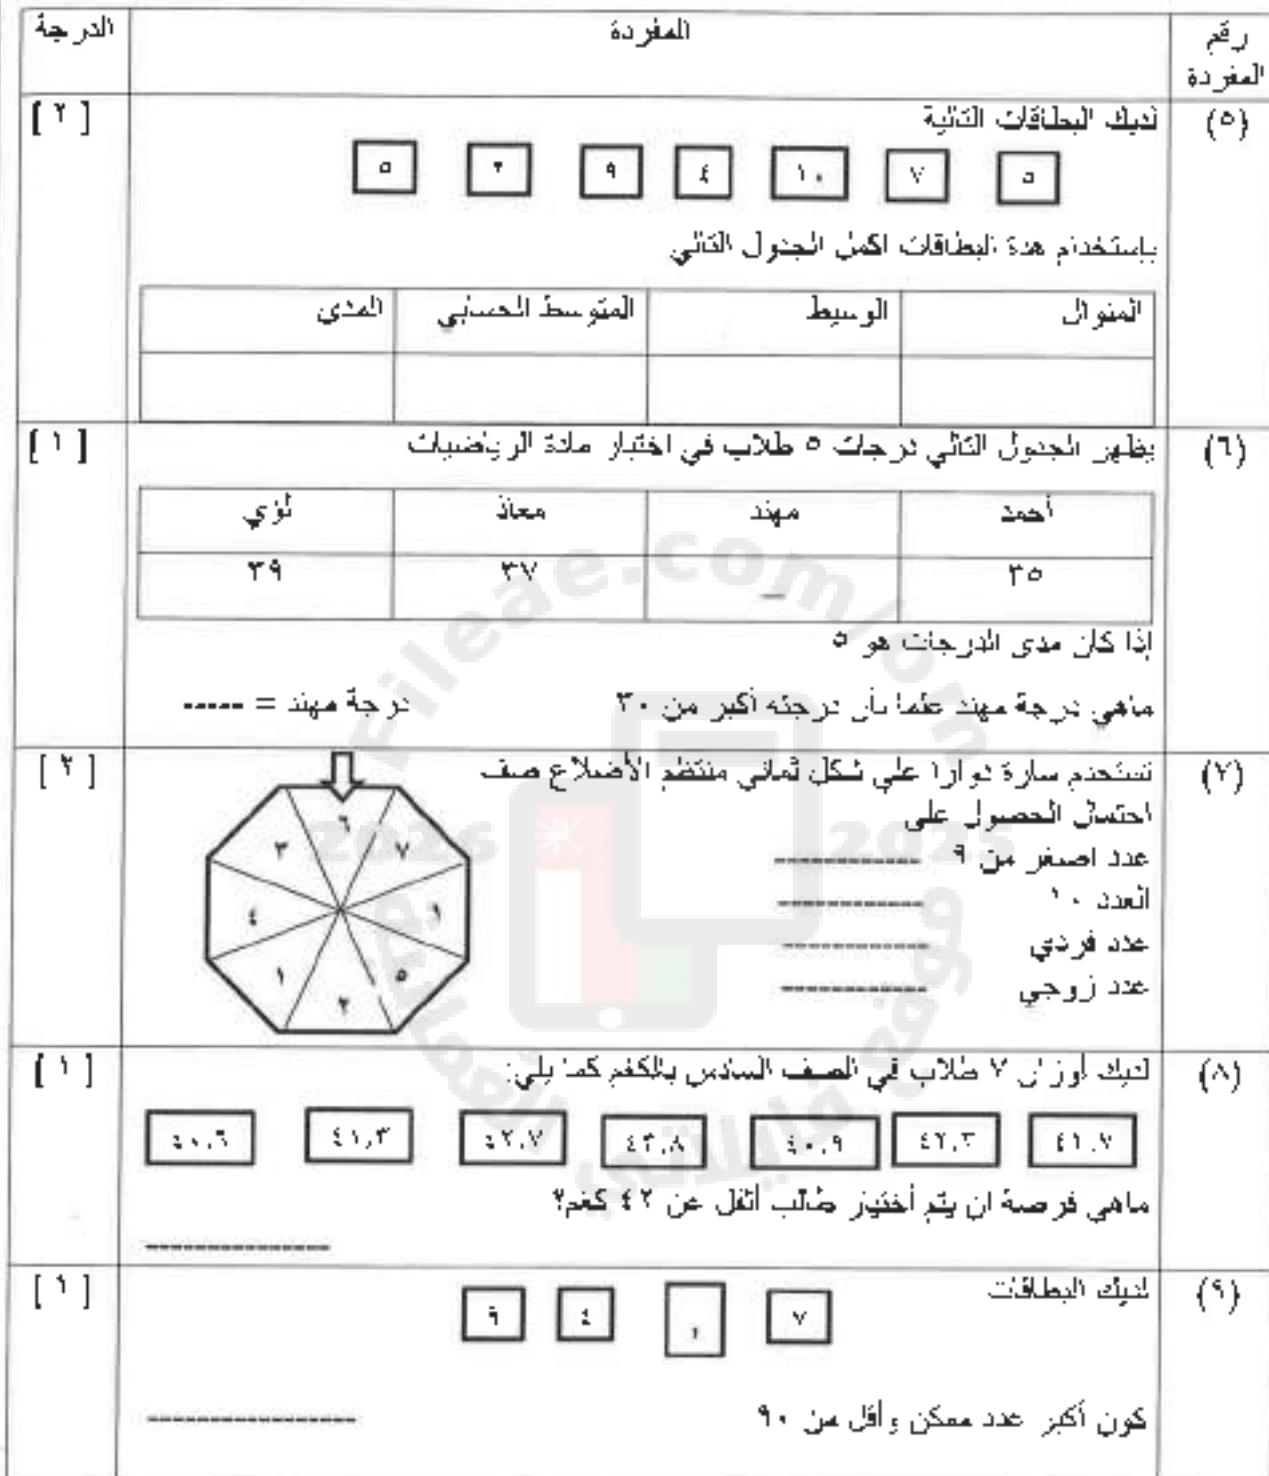 رقم المفردة المفردة الدرجة
(٥) لديك البطاقات التالية [ ٢ ]
٥ ٧ ١٠ ٤ ٩ ٥
بإستخدام هدة البطاقات اكمل الجدول التالي
المنوال الوسيط المتوسط الحسابي المدى
(٦) يظهر الجدول التالي درجات ٥ طلاب في اختبار مادة الرياضيات [ ١ ]
أحمد مهند معاذ لؤي
٣٥ _ ٣٧ ٣٩
إذا كان مدى الدرجات هو ٥
ماهي درجة مهند علما بأن درجته أكبر من ٣٠ درجة مهند = -----
(٧) تستخدم سارة دوارا على شكل ثماني منتظم الأضلاع صف [ ٢ ]
احتمال الحصول على
عدد اصغر من ٩ ------------
العدد ١٠ ------------
عدد فردي ------------
عدد زوجي ------------
٦
٣ ٧
٤
١ ٥
٢
(٨) لديك أوزان ٧ طلاب في الصف السادس بالكغم كما يلي: [ ١ ]
٤١,٧ ٤٢,٣ ٤٠,٩ ٤٣,٨ ٤٢,٧ ٤١,٣ ٤٠,٦
ماهي فرصة ان يتم أختيار طالب أثقل عن ٤٢ كغم؟
----------------
(٩) لديك البطاقات [ ١ ]
٧ , ٤ ٩
كون أكبر عدد ممكن وأقل من ٩٠ ------------------
Fileae.com/om
2025 2025
موقع فايلاتي العمانية